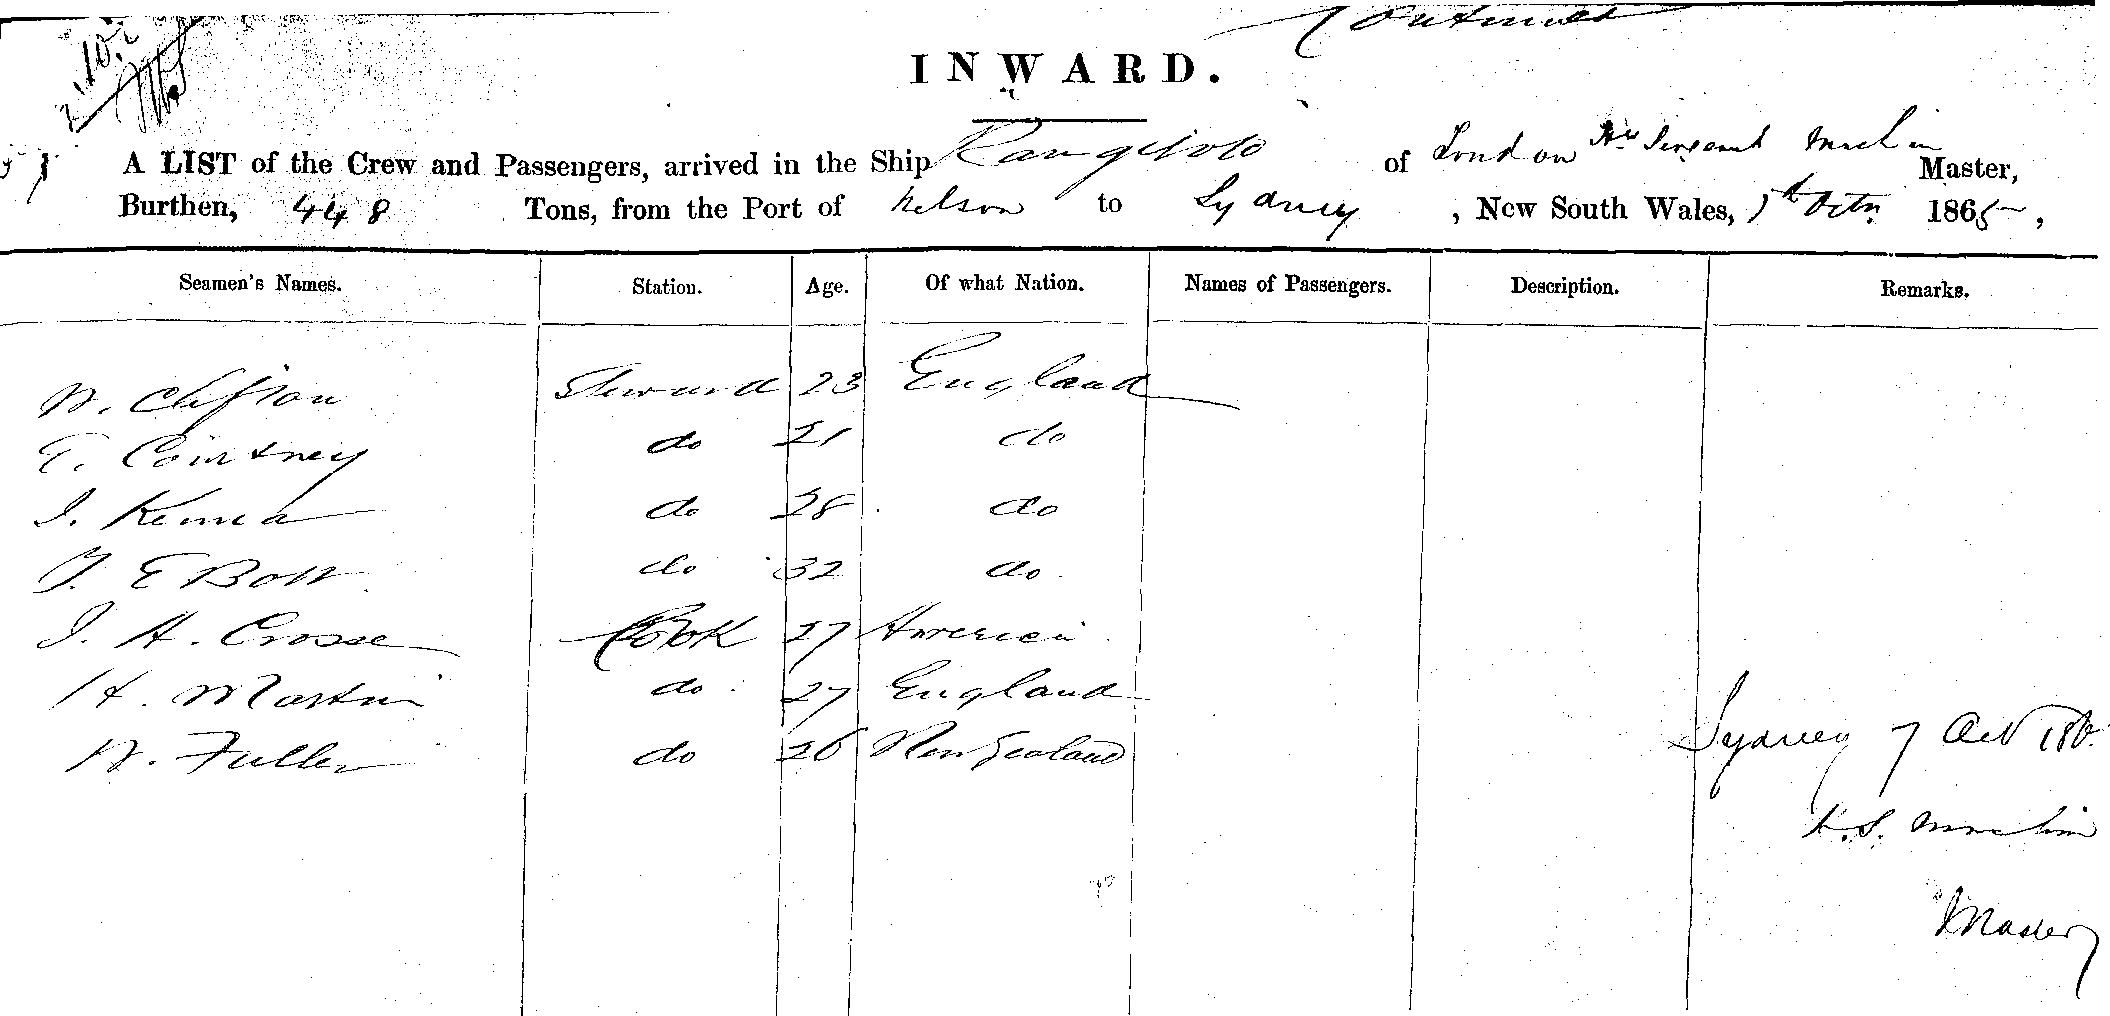 Continued
INWARD.
A LIST of the Crew and Passengers, arrived in the Ship Rangitoto of London Master,
Burthen, 448 Tons, from the Port of Nelson to Sydney, New South Wales, 7th Octr. 1865,
Seamen's Names. Station. Age. Of what Nation. Names of Passengers. Description. Remarks.
W. Clifton Steward 23 England
T. Courtney do 21 do
J. Kenna do 28 do
do 32 do
J. H. Crosse Cook 27 America
H. Martin do 27 England
W. Fuller do 26 New Zealand
Sydney 7 Oct 186
Master